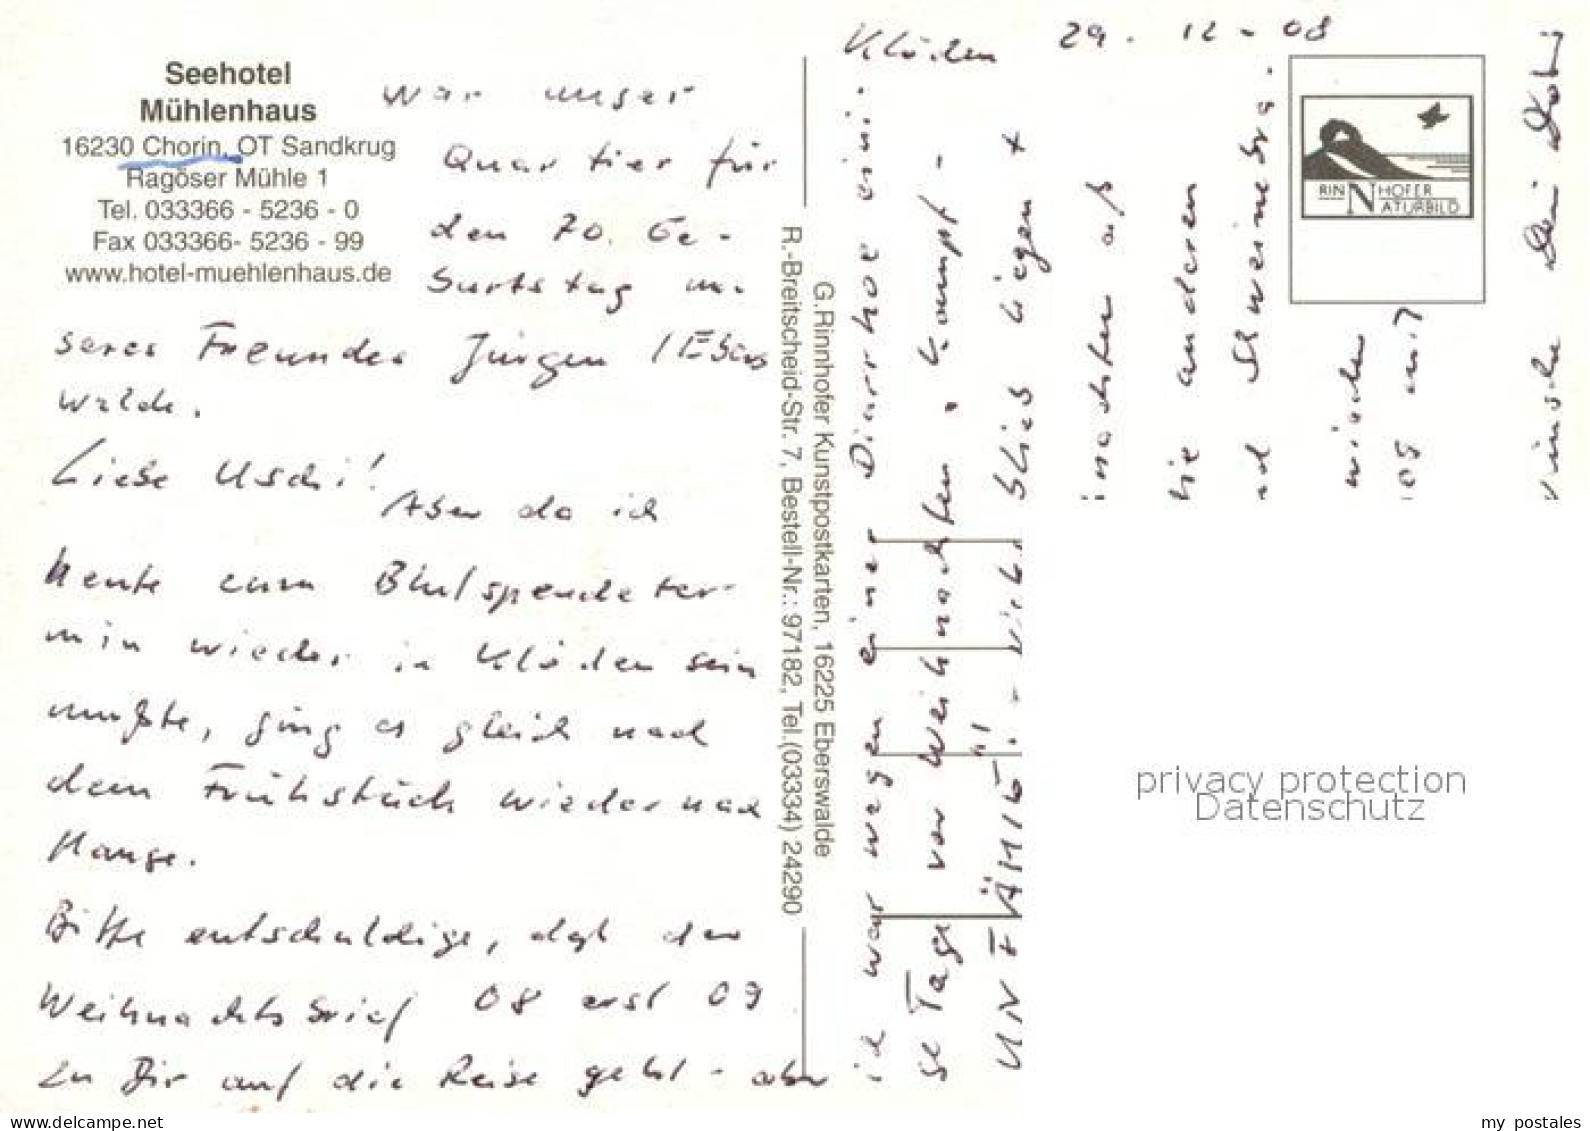 Seehotel
Mühlenhaus
16230 Chorin, OT Sandkrug
Ragöser Mühle 1
Tel. 033366 - 5236 - 0
Fax 033366- 5236 - 99
www.hotel-muehlenhaus.de
war unser
Quartier für
den 70. Ge-
burtstag un-
seres Freundes Jürgen / Ebers
walde.
Liebe Uschi!
Aber da ich
heute zum Blutspendeter-
min wieder in Klöden sein
mußte, ging es gleich nach
dem Frühstück wieder nach
Hause.
Bitte entschuldige, daß der
Weihnachtsbrief 08 erst 09
zu Dir auf die Reise geht - aber
G.Rinnhofer Kunstpostkarten, 16225 Eberswalde
R.-Breitscheid-Str. 7, Bestell-Nr.: 97182, Tel.(03334) 24290
Klöden 29. 12 - 08
ich war wegen einer Diarrhoe eini.
ge Tage vor Weihnachten, kampf-
UNFÄHIG"! - vieles blieb liegen +
die anderen
wünsche Dein
RINNHOFER
NATURBILD
privacy protection
Datenschutz
my postales
www.delcampe.net